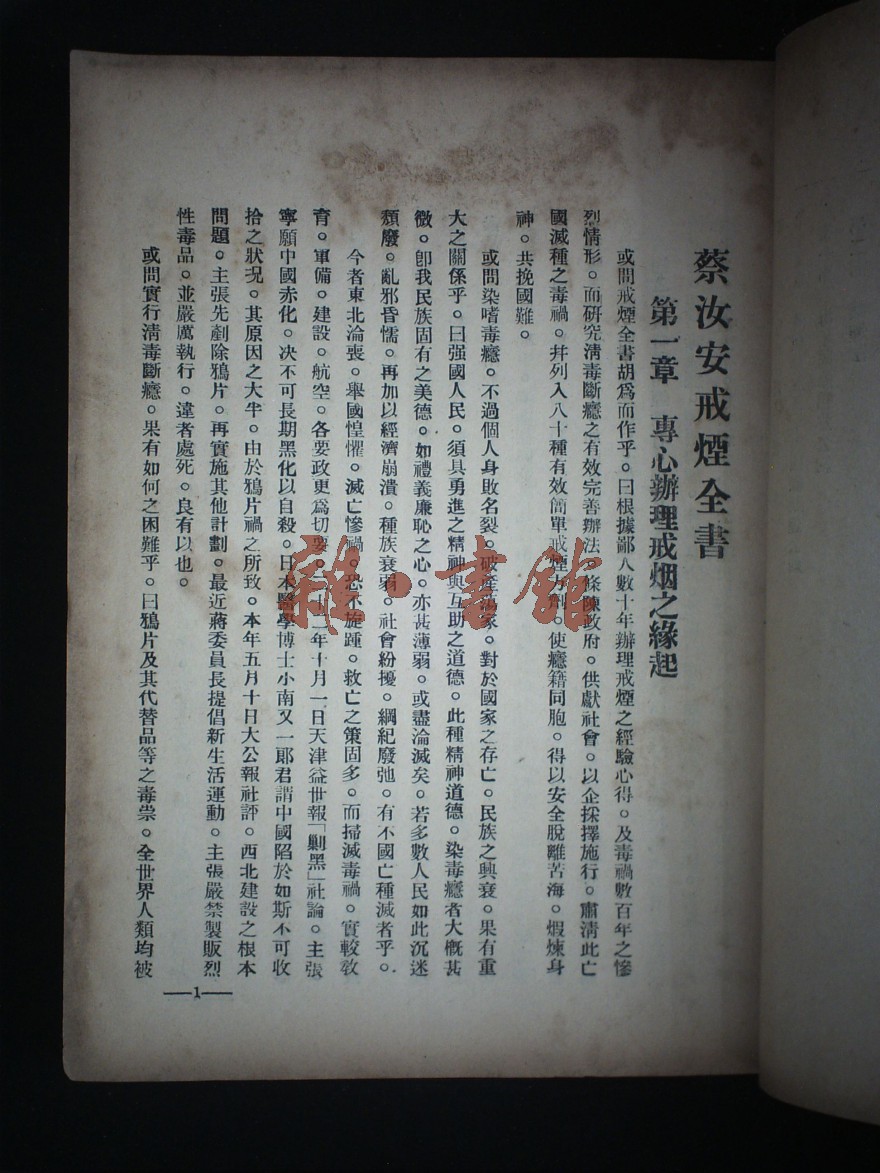 蔡汝安戒煙全書
第一章　專心辦理戒烟之緣起
或問戒煙全書胡爲而作乎。曰根據鄙人數十年辦理戒煙之經驗心得。及毒禍數百年之慘
烈情形。而研究淸毒斷癮之有效完善辦法。條陳政府。供獻社會。以企採擇施行。肅淸此亡
國滅種之毒禍。幷列入八十種有效簡單戒煙方劑。使癮籍同胞。得以安全脫離苦海。煆煉身
神。共挽國難。
或問染嗜毒癮。不過個人身敗名裂。破產蕩家。對於國家之存亡。民族之興衰。果有重
大之關係乎。曰强國人民。須具勇進之精神與互助之道德。此種精神道德。染毒癮者大槪甚
微。卽我民族固有之美德。如禮義廉恥之心。亦甚薄弱。或盡淪滅矣。若多數人民如此沉迷
頹廢。亂邪昏懦。再加以經濟崩潰。種族衰弱。社會紛擾。綱紀廢弛。有不國亡種滅者乎。
今者東北淪喪。舉國惶懼。滅亡慘禍。恐不旋踵。救亡之策固多。而掃滅毒禍。實較敎
育。軍備。建設。航空。各要政更爲切要。二十二年十月一日天津益世報「剿黑」社論。主張
寧願中國赤化。决不可長期黑化以自殺。日本醫學博士小南又一郞君謂中國陷於如斯不可收
拾之狀况。其原因之大半。由於鴉片禍之所致。本年五月十日大公報社評。西北建設之根本
問題。主張先剷除鴉片。再實施其他計劃。最近蔣委員長提倡新生活運動。主張嚴禁製販烈
性毒品。並嚴厲執行。違者處死。良有以也。
或問實行淸毒斷癮。果有如何之困難乎。曰鴉片及其代替品等之毒祟。全世界人類均被
1
雜·書館